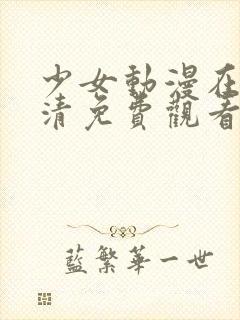 少女動漫在
清免費觀看
藍繁華一世